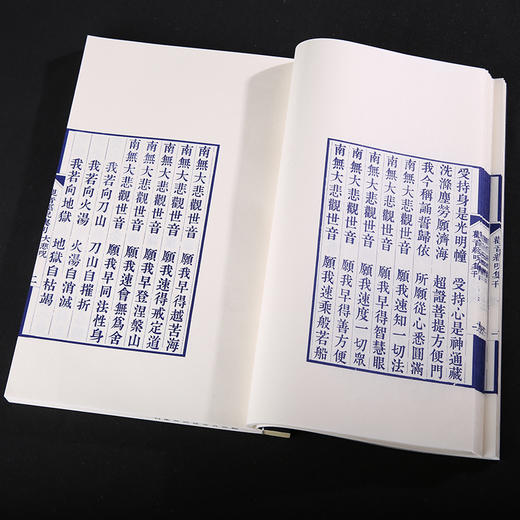 受持身是光明幢　受持心是神通藏
洗滌塵勞願濟海　超證菩提方便門
我今稱誦誓歸依　所願從心悉圓滿
南無大悲觀世音　願我速知一切法
南無大悲觀世音　願我早得智慧眼
南無大悲觀世音　願我速度一切眾
南無大悲觀世音　願我早得善方便
南無大悲觀世音　願我速乘般若船
南無大悲觀世音　願我早得越苦海
南無大悲觀世音　願我速得戒定道
南無大悲觀世音　願我早登涅槃山
南無大悲觀世音　願我速會無為舍
南無大悲觀世音　願我早同法性身
我若向刀山　刀山自摧折
我若向火湯　火湯自消滅
我若向地獄　地獄自枯竭
大悲咒　二